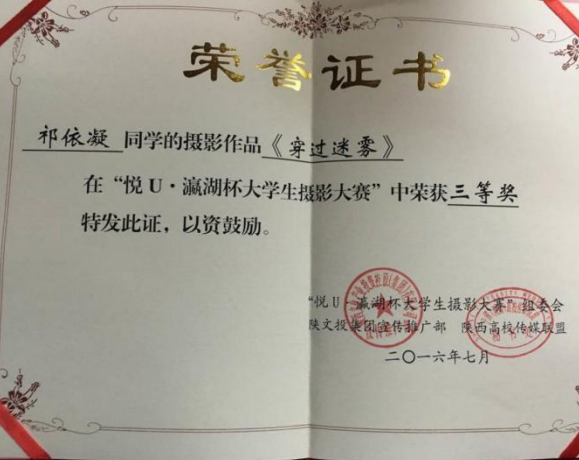 荣誉证书
祁依凝同学的摄影作品《穿过迷雾》
在“悦U·瀛湖杯大学生摄影大赛”中荣获三等奖
特发此证，以资鼓励。
“悦U·瀛湖杯大学生摄影大赛”组委会
陕文投集团宣传推广部 陕西高校传媒联盟
二〇一六年七月